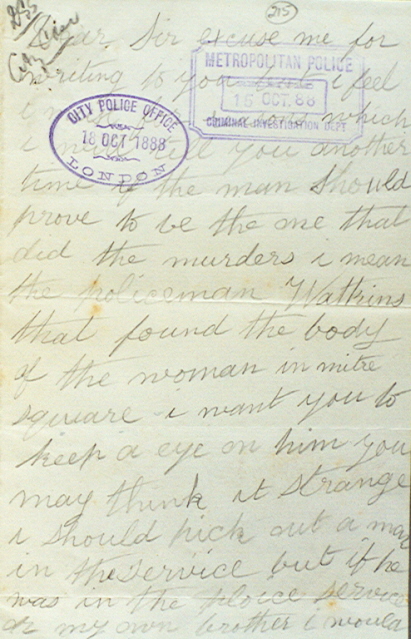 215
Dear Sir excuse me for
writing to you but i feel
METROPOLITAN POLICE
15 OCT. 88
CRIMINAL INVESTIGATION DEPT
CITY POLICE OFFICE
18 OCT 1888
LONDON
i which
i will tell you another
time if the man should
prove to be the one that
did the murders i mean
the policeman Watkins
that found the body
of the woman in mitre
square i want you to
keep a eye on him you
may think it strange
i should pick out a man
in the service but if he
was in the ploice service
or my own brother i would